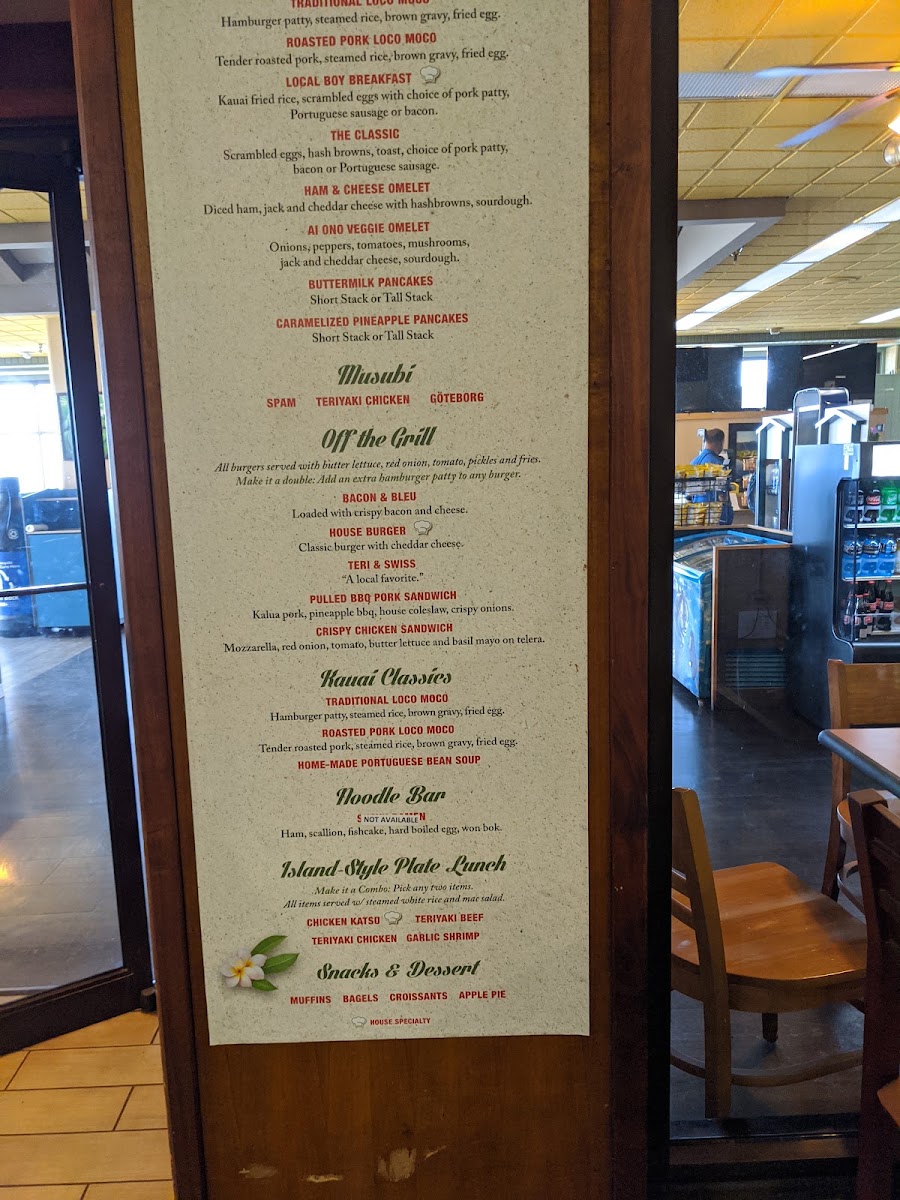 TRADITIONAL LOCO MOCO
Hamburger patty, steamed rice, brown gravy, fried egg.
ROASTED PORK LOCO MOCO
Tender roasted pork, steamed rice, brown gravy, fried egg.
LOCAL BOY BREAKFAST
Kauai fried rice, scrambled eggs with choice of pork patty,
Portuguese sausage or bacon.
THE CLASSIC
Scrambled eggs, hash browns, toast, choice of pork patty,
bacon or Portuguese sausage.
HAM & CHEESE OMELET
Diced ham, jack and cheddar cheese with hashbrowns, sourdough.
AI ONO VEGGIE OMELET
Onions, peppers, tomatoes, mushrooms,
jack and cheddar cheese, sourdough.
BUTTERMILK PANCAKES
Short Stack or Tall Stack
CARAMELIZED PINEAPPLE PANCAKES
Short Stack or Tall Stack
Musubi
SPAM TERIYAKI CHICKEN GÖTEBORG
Off the Grill
All burgers served with butter lettuce, red onion, tomato, pickles and fries.
Make it a double: Add an extra hamburger patty to any burger.
BACON & BLEU
Loaded with crispy bacon and cheese.
HOUSE BURGER
Classic burger with cheddar cheese.
TERI & SWISS
“A local favorite.”
PULLED BBQ PORK SANDWICH
Kalua pork, pineapple bbq, house coleslaw, crispy onions.
CRISPY CHICKEN SANDWICH
Mozzarella, red onion, tomato, butter lettuce and basil mayo on telera.
Kauai Classics
TRADITIONAL LOCO MOCO
Hamburger patty, steamed rice, brown gravy, fried egg.
ROASTED PORK LOCO MOCO
Tender roasted pork, steamed rice, brown gravy, fried egg.
HOME-MADE PORTUGUESE BEAN SOUP
Noodle Bar
NOT AVAILABLE
Ham, scallion, fishcake, hard boiled egg, won bok.
Island-Style Plate Lunch
Make it a Combo: Pick any two items.
All items served w/ steamed white rice and mac salad.
CHICKEN KATSO TERIYAKI BEEF
TERIYAKI CHICKEN GARLIC SHRIMP
Snacks & Dessert
MUFFINS BAGELS CROISSANTS APPLE PIE
HOUSE SPECIALTY